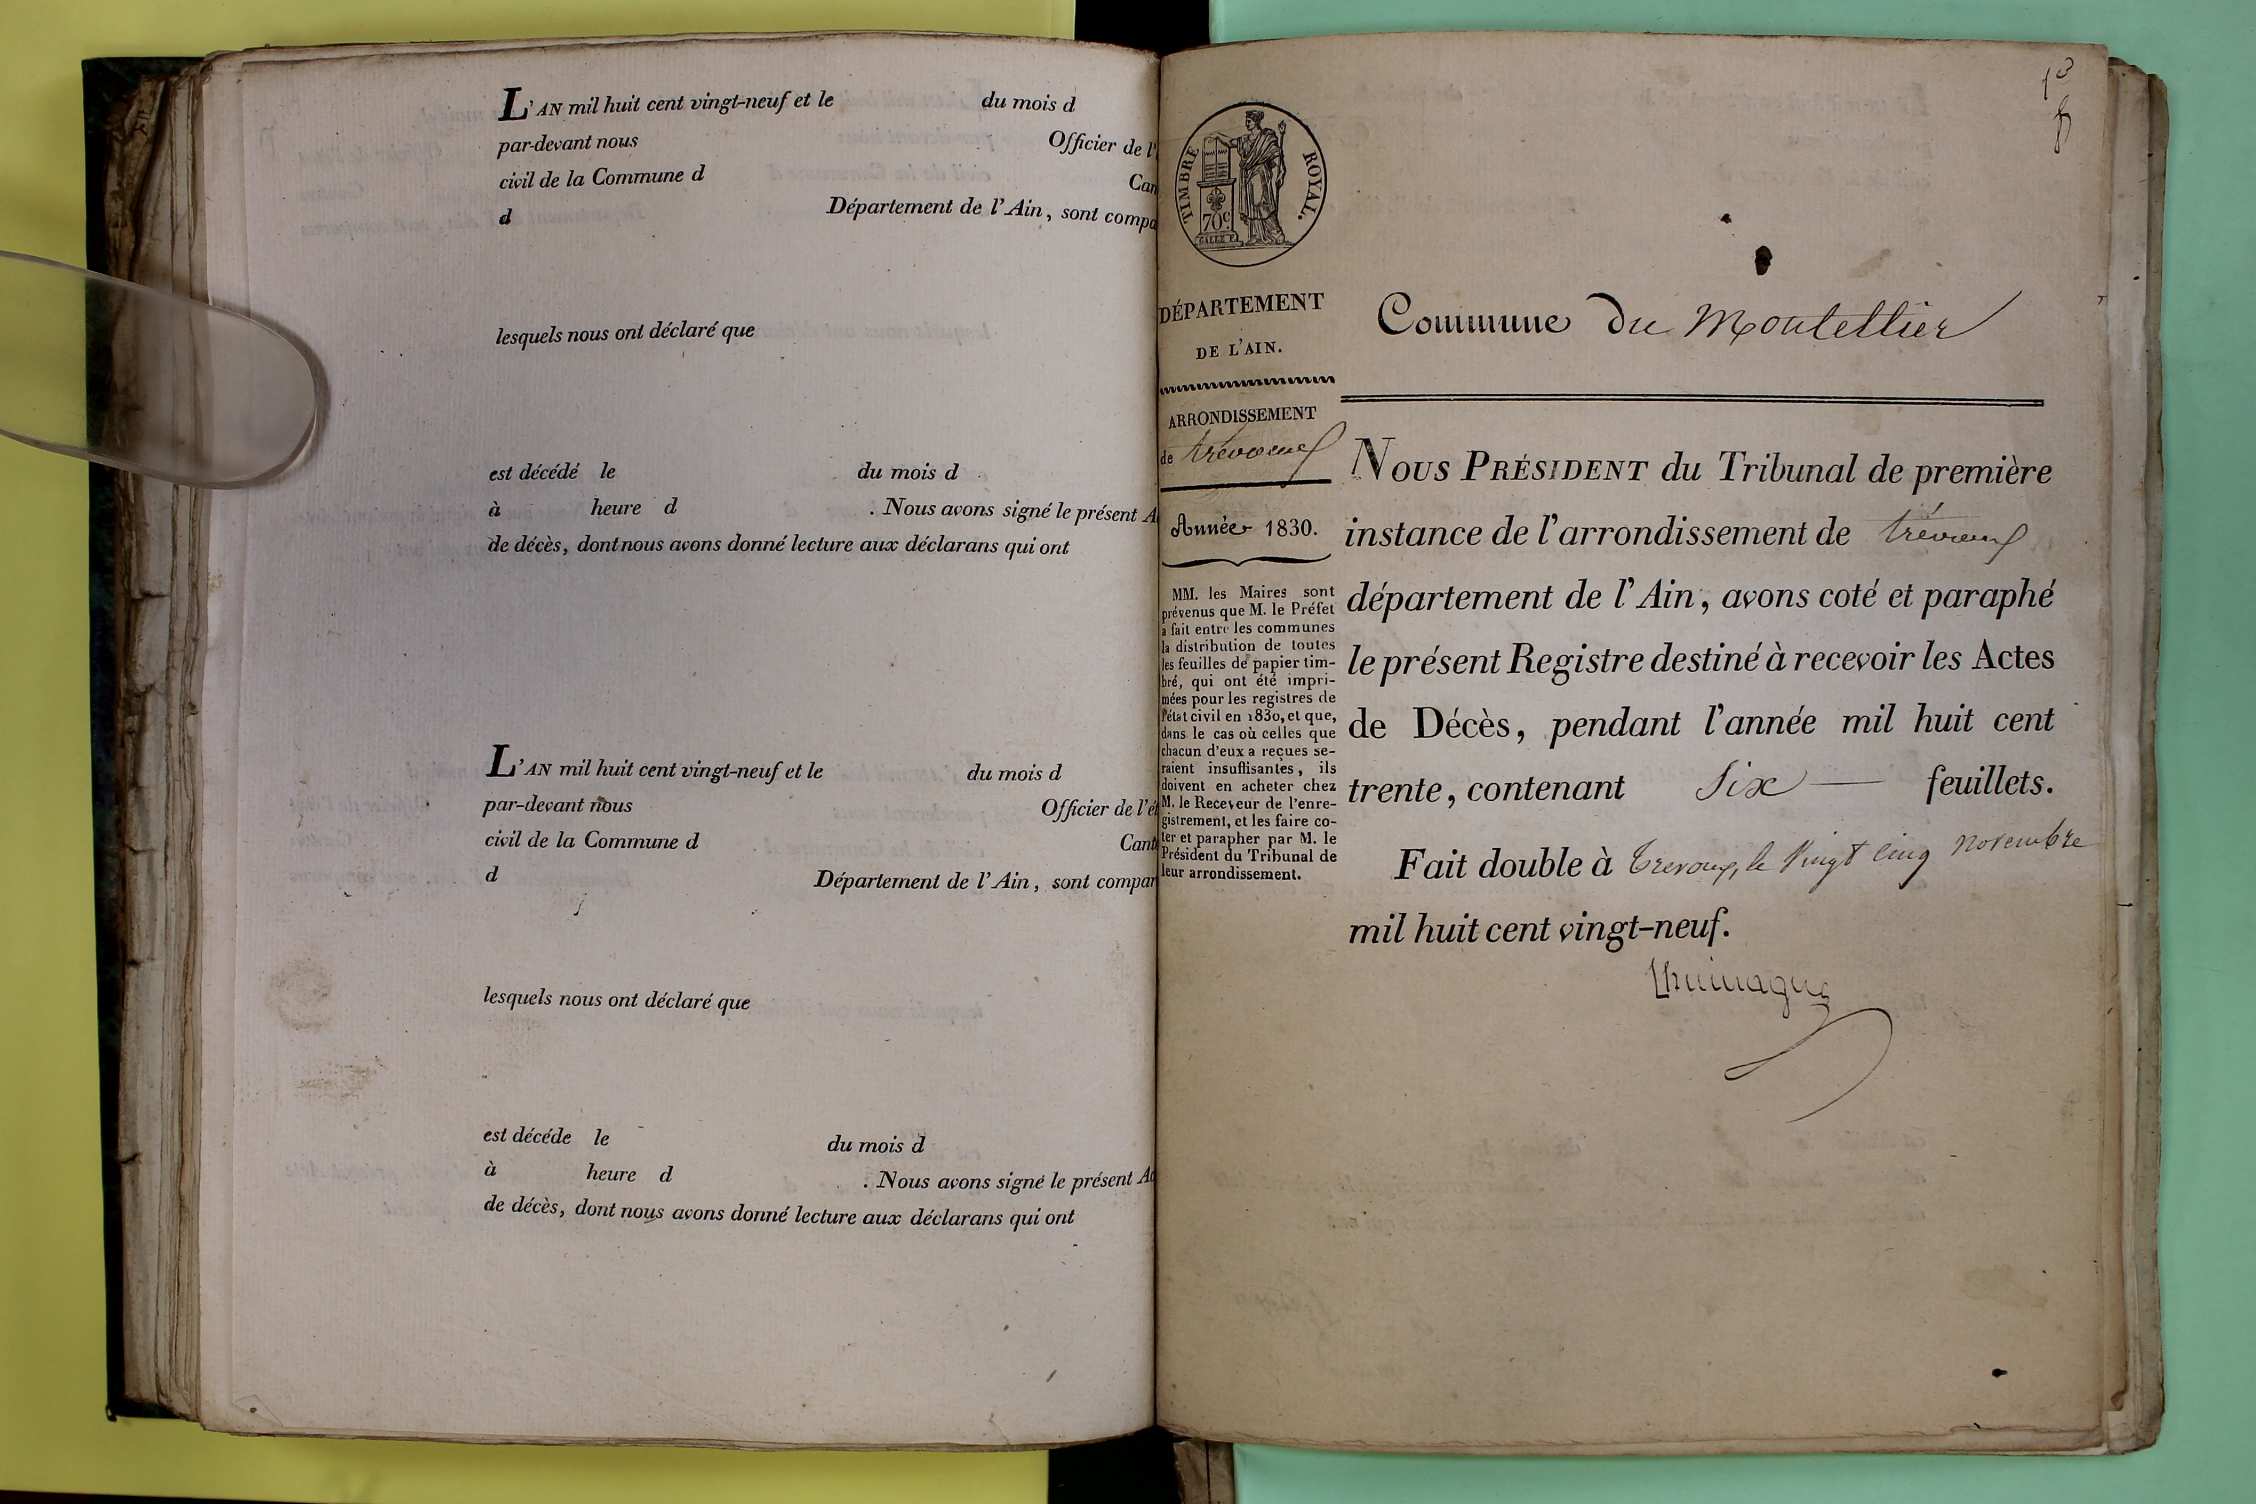 L'AN mil huit cent vingt-neuf et le du mois d
par-devant nous Officier de l'
civil de la Commune d Can
d Département de l'Ain, sont compa
lesquels nous ont déclaré que
est décédé le du mois d
à heure d . Nous avons signé le présent A
de décès, dont nous avons donné lecture aux déclarans qui ont
L'AN mil huit cent vingt-neuf et le du mois d
par-devant nous Officier de l'ét
civil de la Commune d Cant
d Département de l'Ain, sont compar
lesquels nous ont déclaré que
est décéde le du mois d
à heure d . Nous avons signé le présent Ac
de décès, dont nous avons donné lecture aux déclarans qui ont
TIMBRE ROYAL.
70c.
DÉPARTEMENT
DE L'AIN.
ARRONDISSEMENT
de trévoux
Année 1830.
MM. les Maires sont
prévenus que M. le Préfet
a fait entre les communes
la distribution de toutes
les feuilles de papier tim-
bré, qui ont été impri-
mées pour les registres de
l'état civil en 1830, et que,
dans le cas où celles que
chacun d'eux a reçues se-
raient insuffisantes, ils
doivent en acheter chez
M. le Receveur de l'enre-
gistrement, et les faire co-
ter et parapher par M. le
Président du Tribunal de
leur arrondissement.
Commune du Montellier
NOUS PRÉSIDENT du Tribunal de première
instance de l'arrondissement de trévoux
département de l'Ain, avons coté et paraphé
le présent Registre destiné à recevoir les Actes
de Décès, pendant l'année mil huit cent
trente, contenant Six feuillets.
Fait double à Trevoux, le Vingt cinq novembre
mil huit cent vingt-neuf.